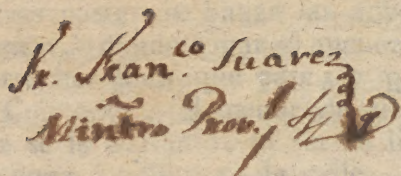 Fr. Fran.co Suarez
Minrõ Prov.l